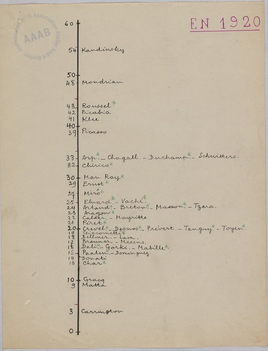 EN 1920
AAAB
60
54 Kandinsky
50
48 Mondrian
43 Roussel
42 Picabia
41 Klee
40
39 Picasso
33 Arp - Chagall - Duchamp - Schwitters
32 Chirico
30 Man Ray
29 Ernst
27 Miró
25 Eluard - Vaché
24 Artaud - Breton - Masson - Tzara
23 Aragon
22 Calder - Magritte
21 Péret
20 Crevel - Desnos - Prévert - Tanguy - Toyen
19 Giacometti
18 Lam
17 Brauner
16 Dali - Gorki - Mabille
15 Paalen - Dominguez
14 Donati
13 Char
10 Gracq
9 Matta
3 Carrington
0